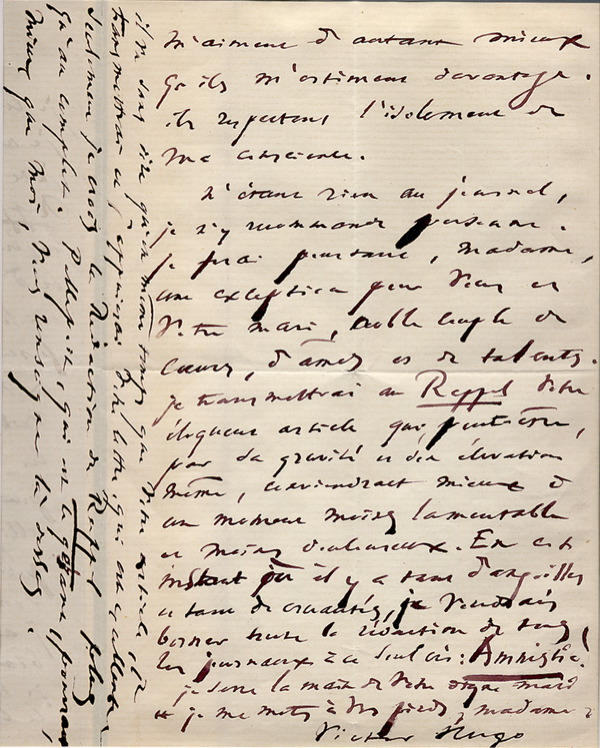 m'aiment d'autant mieux
qu'ils m'estiment davantage.
ils respectent l'isolement de
ma conscience.
N'étant rien au journal,
je n'y recommande personne.
je ferai pourtant, madame,
une exception pour vous et
votre mari, noble couple de
cœurs, d'âmes et de talents.
je transmettrai au Rappel votre
éloquent article qui, peut-être,
par sa gravité et son élévation
même, conviendrait mieux à
un moment moins lamentable
et moins douloureux. En cet
instant où il y a tant d'angoisses
et tant de cruautés, je voudrais
borner toute la rédaction de tous
les journaux à ce seul cri: Amnistie!
je serre la main de votre digne mari
et je me mets à vos pieds, madame
Victor Hugo
il va sans dire qu'en même temps que votre article, je
transmettrai et j'appuierai votre lettre, qui est excellente.
Seulement je crois la Rédaction du Rappel plus
qu'au complet. Pelleport, qui est le, pourrait,
mieux que moi, vous renseigner là-dessus.